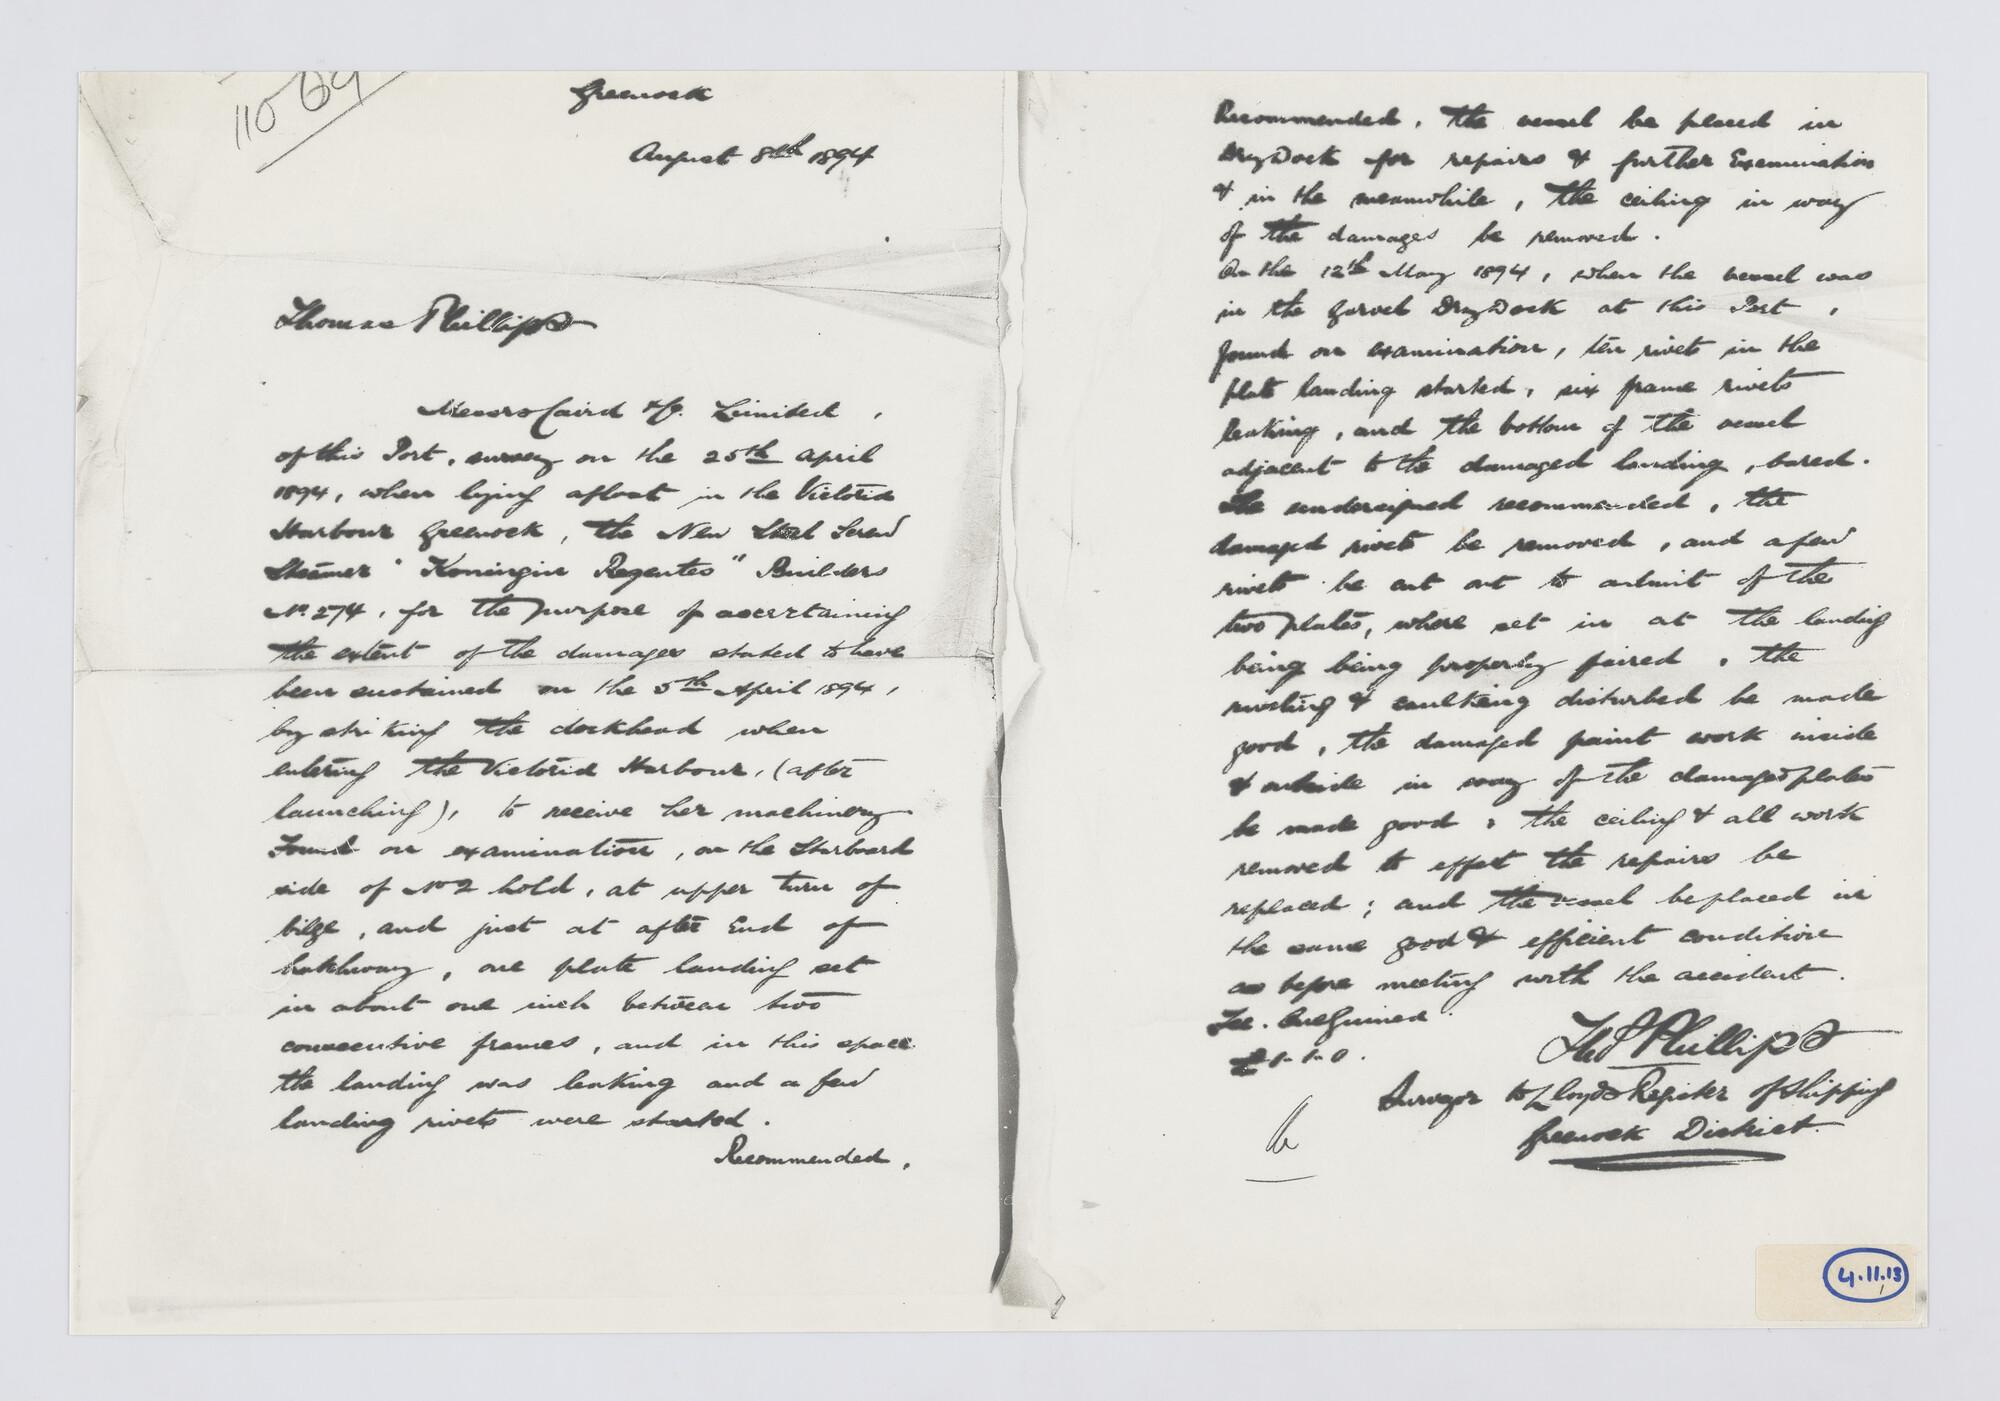 11069
Greenock
August 8th 1894
Thomas Phillips
Messrs Caird & Co. Limited,
of this Port, survey on the 25th April
1894, when lying afloat in the Victoria
Harbour Greenock, the New Steel Screw
Steamer "Koningin Regentes" Builders
No. 274, for the purpose of ascertaining
the extent of the damages stated to have
been sustained on the 5th April 1894,
by striking the dockhead when
entering the Victoria Harbour, (after
launching), to receive her machinery
Found on examination, on the Starboard
side of No 2 hold, at upper turn of
bilge, and just at after End of
hatchway, one plate landing set
in about one inch between two
consecutive frames, and in this space
the landing was leaking and a few
landing rivets were started.
Recommended,
Recommended, the vessel be placed in
Dry Dock for repairs & further Examination
& in the meanwhile, the ceiling in way
of the damages be removed.
On the 12th May 1894, when the vessel was
in the Garvel Dry Dock at this Port,
found on examination, ten rivets in the
plate landing started, six frame rivets
leaking, and the bottom of the vessel
adjacent to the damaged landing, bared.
The undersigned recommended, the
damaged rivets be removed, and a few
rivets be cut out to admit of the
two plates, where set in at the landing
being being properly faired, the
riveting & caulking disturbed be made
good, the damaged paint work inside
& outside in way of the damaged plates
be made good; the ceiling & all work
removed to effect the repairs be
replaced; and the vessel be placed in
the same good & efficient condition
as before meeting with the accident.
Fee. One Guinea
£1-1-0.
Thos Phillips
Surveyor to Lloyds Register of Shipping
Greenock District.
4.11.13